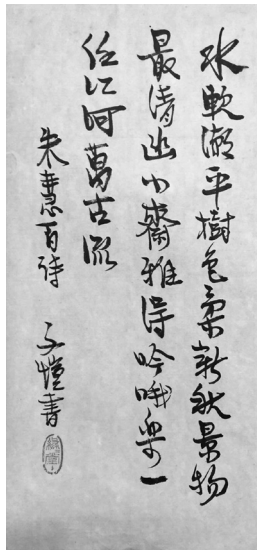 水軟潮平樹色柔新秋景物
最清幽小齋雅得吟哦樂一
任江河萬古流
朱慧百詩 子愷書